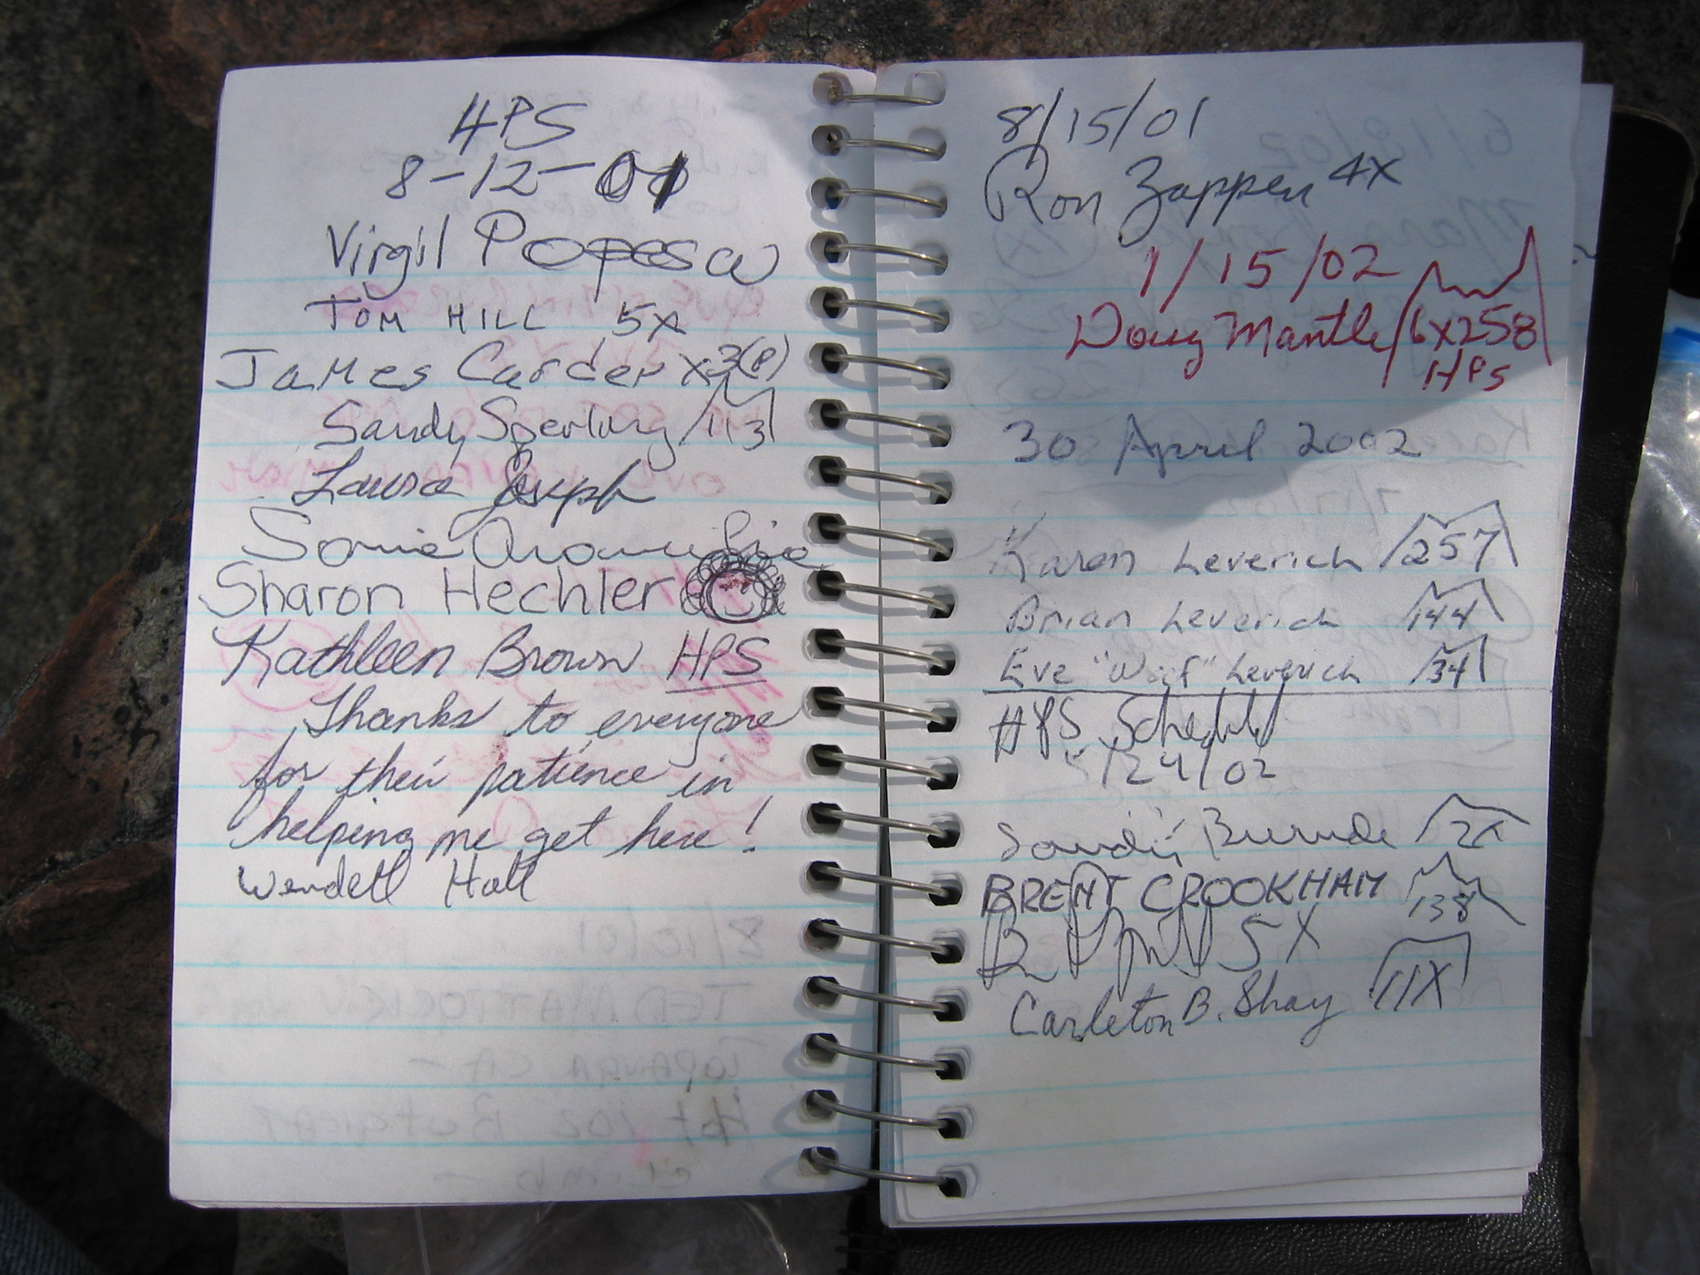 HPS
8-12-01
Virgil Popescu
TOM HILL 5x
James Carder x3(P)
Sandy Sperling 113
Laura Joseph
Sonia
Sharon Hechler
Kathleen Brown HPS
Thanks to everyone
for their patience in
helping me get here!
Wendell Hall
8/15/01
Ron Zappen 4x
1/15/02
Doug Mantle 6x258
HPS
30 April 2002
Karen Leverich 257
Brian Leverich 144
Eve "Woof" Leverich 34
HPS
5/24/02
Sandy 2x
BRENT CROOKHAM 138
5X
Carleton B. Shay 11X